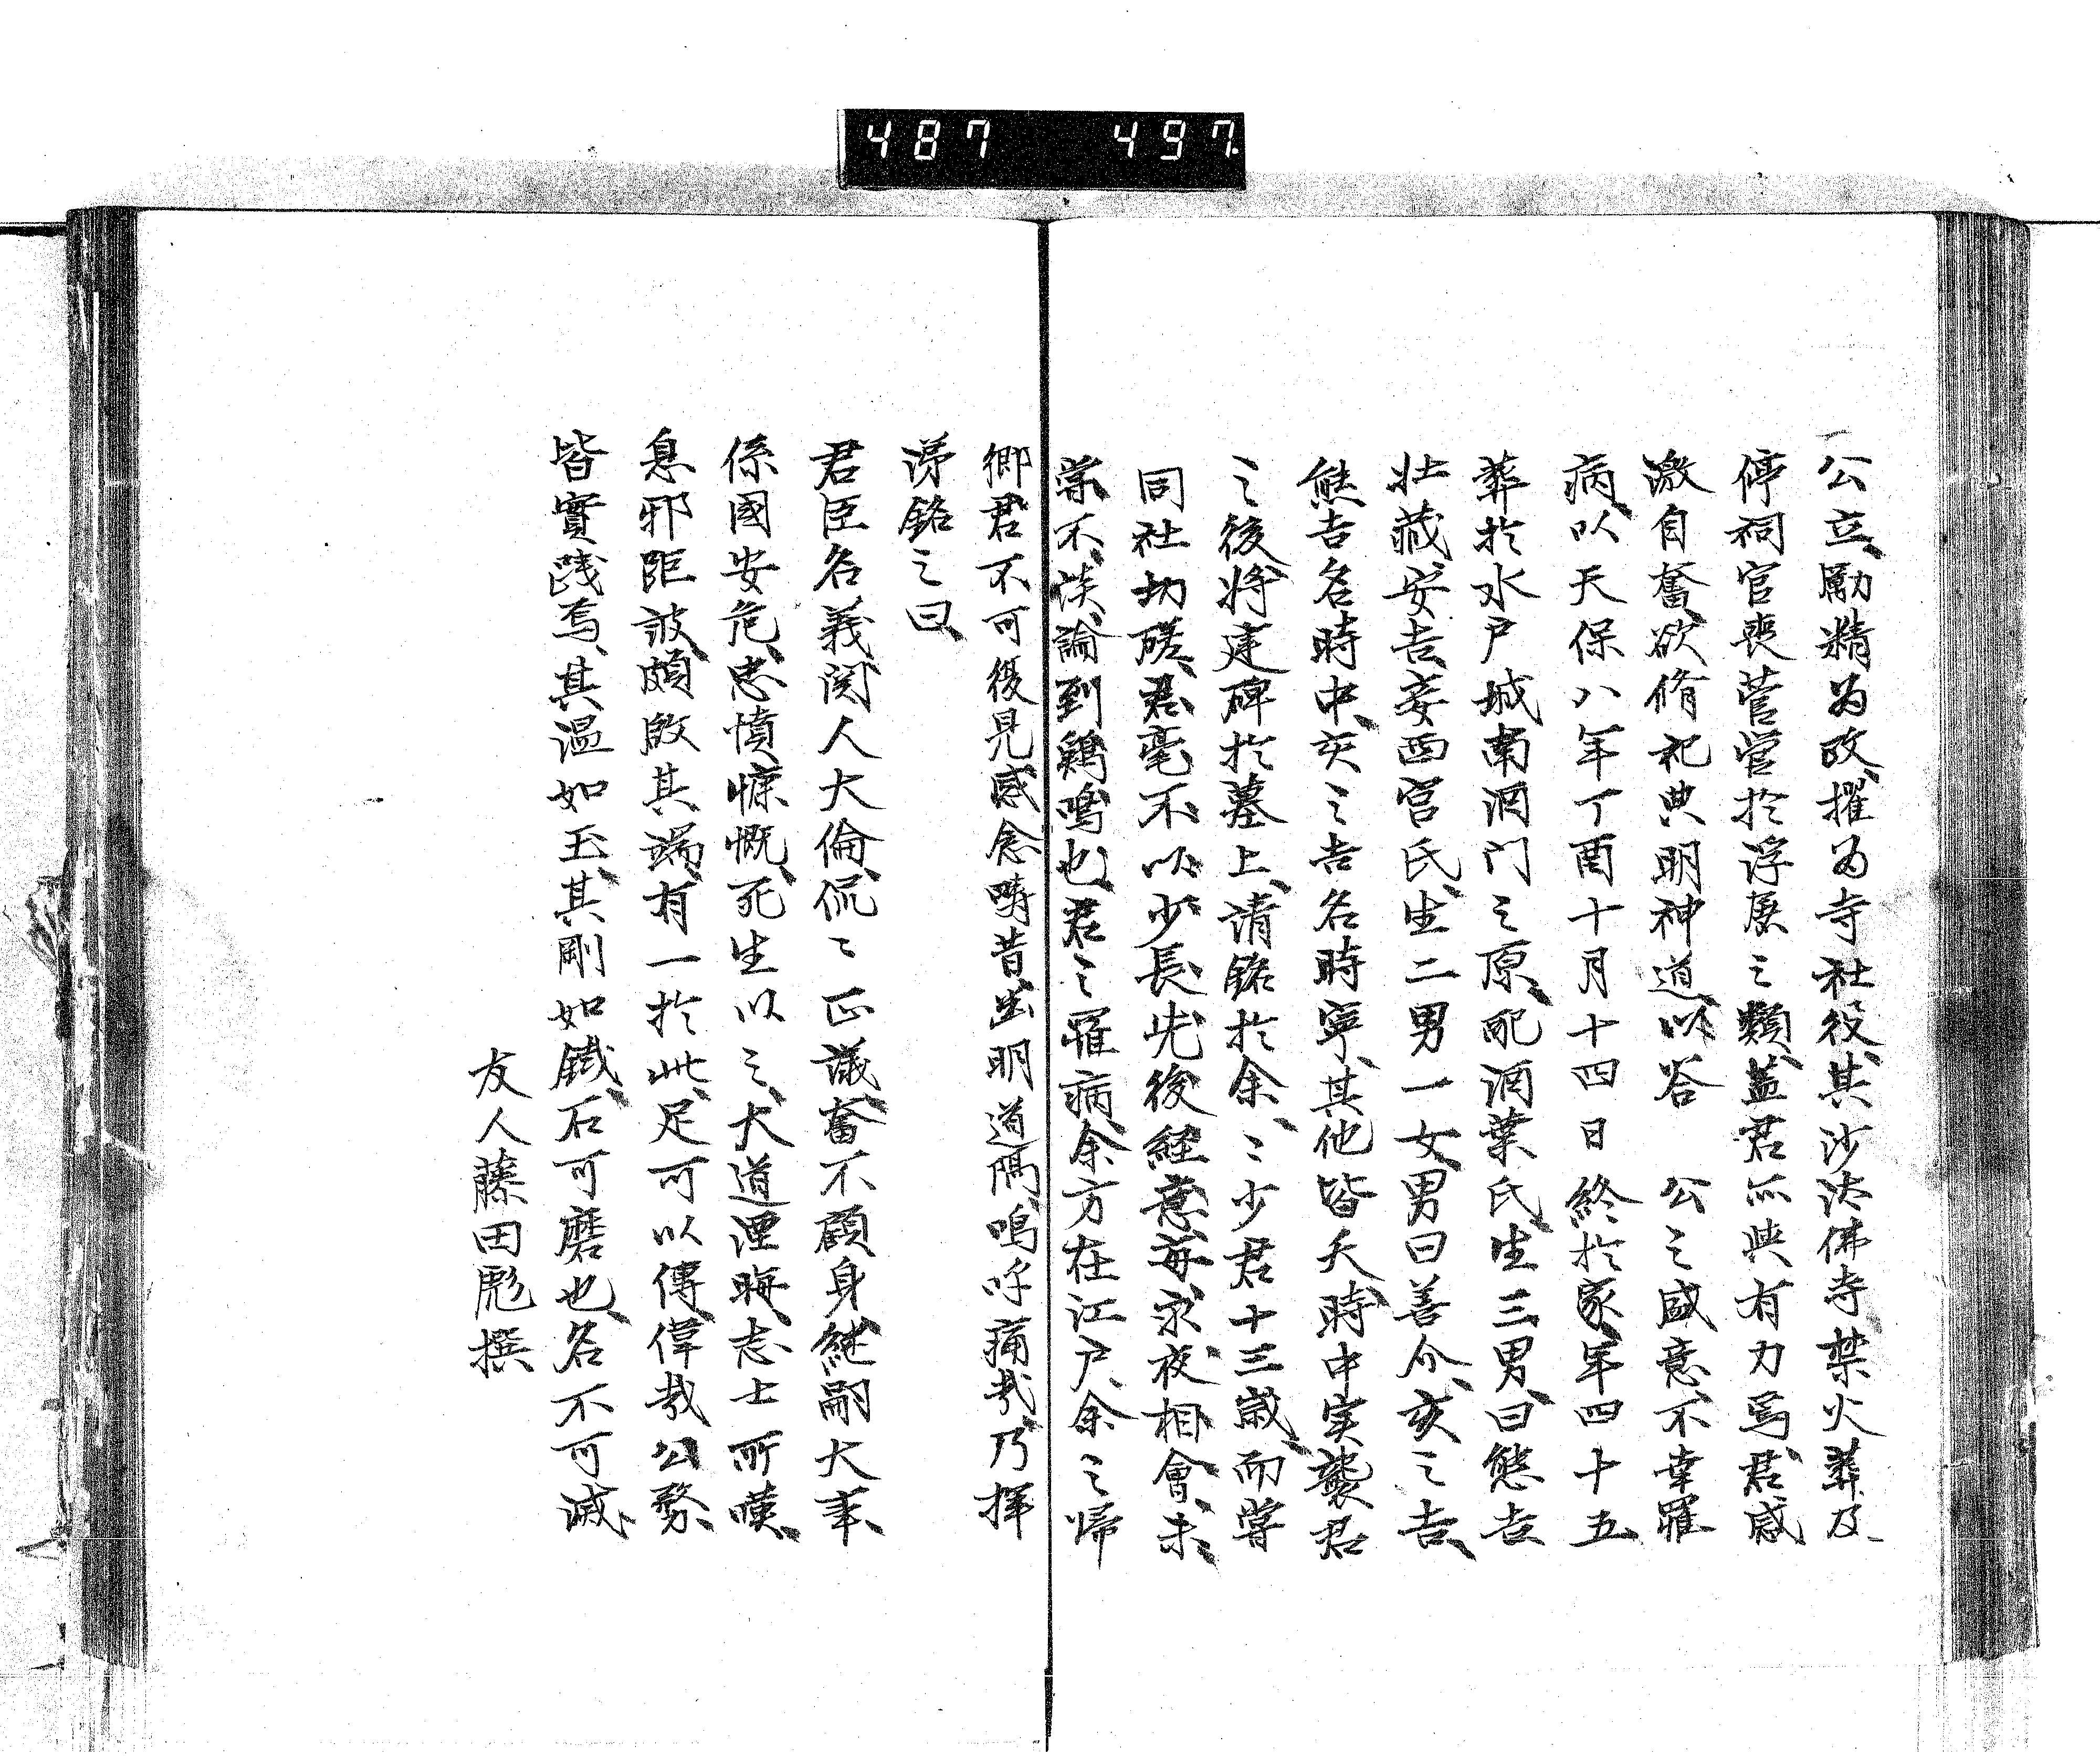 487 497.
公立、勵精為政、擢為寺社役、其沙汰佛寺禁火葬及
停祠官喪菅営於浮屠之類、蓋君所與有力焉、君感
激自奮、欲脩祀典明神道、以答　公之盛意、不幸罹
病、以天保八年丁酉十月十四日終於家、年四十五
葬於水戸城南酒门之原、配酒葉氏、生三男、曰熊吉
壮藏、安吉、妾西宮氏、生二男一女、男曰善介、亥之吉、
熊吉名時中、亥之吉名時寧、其他皆夭、時中実襲君
之後、将建碑於墓上、請銘於余、〻少君十三歳、而嘗
同社切磋、君毫不以少長先後経意、毎永夜相會、未
嘗不談論到鶏鳴也、君之罹病、余方在江戸、余之帰
郷君不可復見、感念疇昔、幽明道隔、嗚呼痛哉、乃揮
涕銘之曰、
君臣名義、関人大倫、侃〻正議、奮不顧身、継嗣大事、
係國安危、忠憤慷慨、死生以之、大道湮晦、志士所嘆、
息邪距詖、頗啟其端、有一於此、足可以傳、偉哉公務、
皆實踐焉、其温如玉、其剛如鐵、石可磨也、名不可滅、
友人藤田彪撰